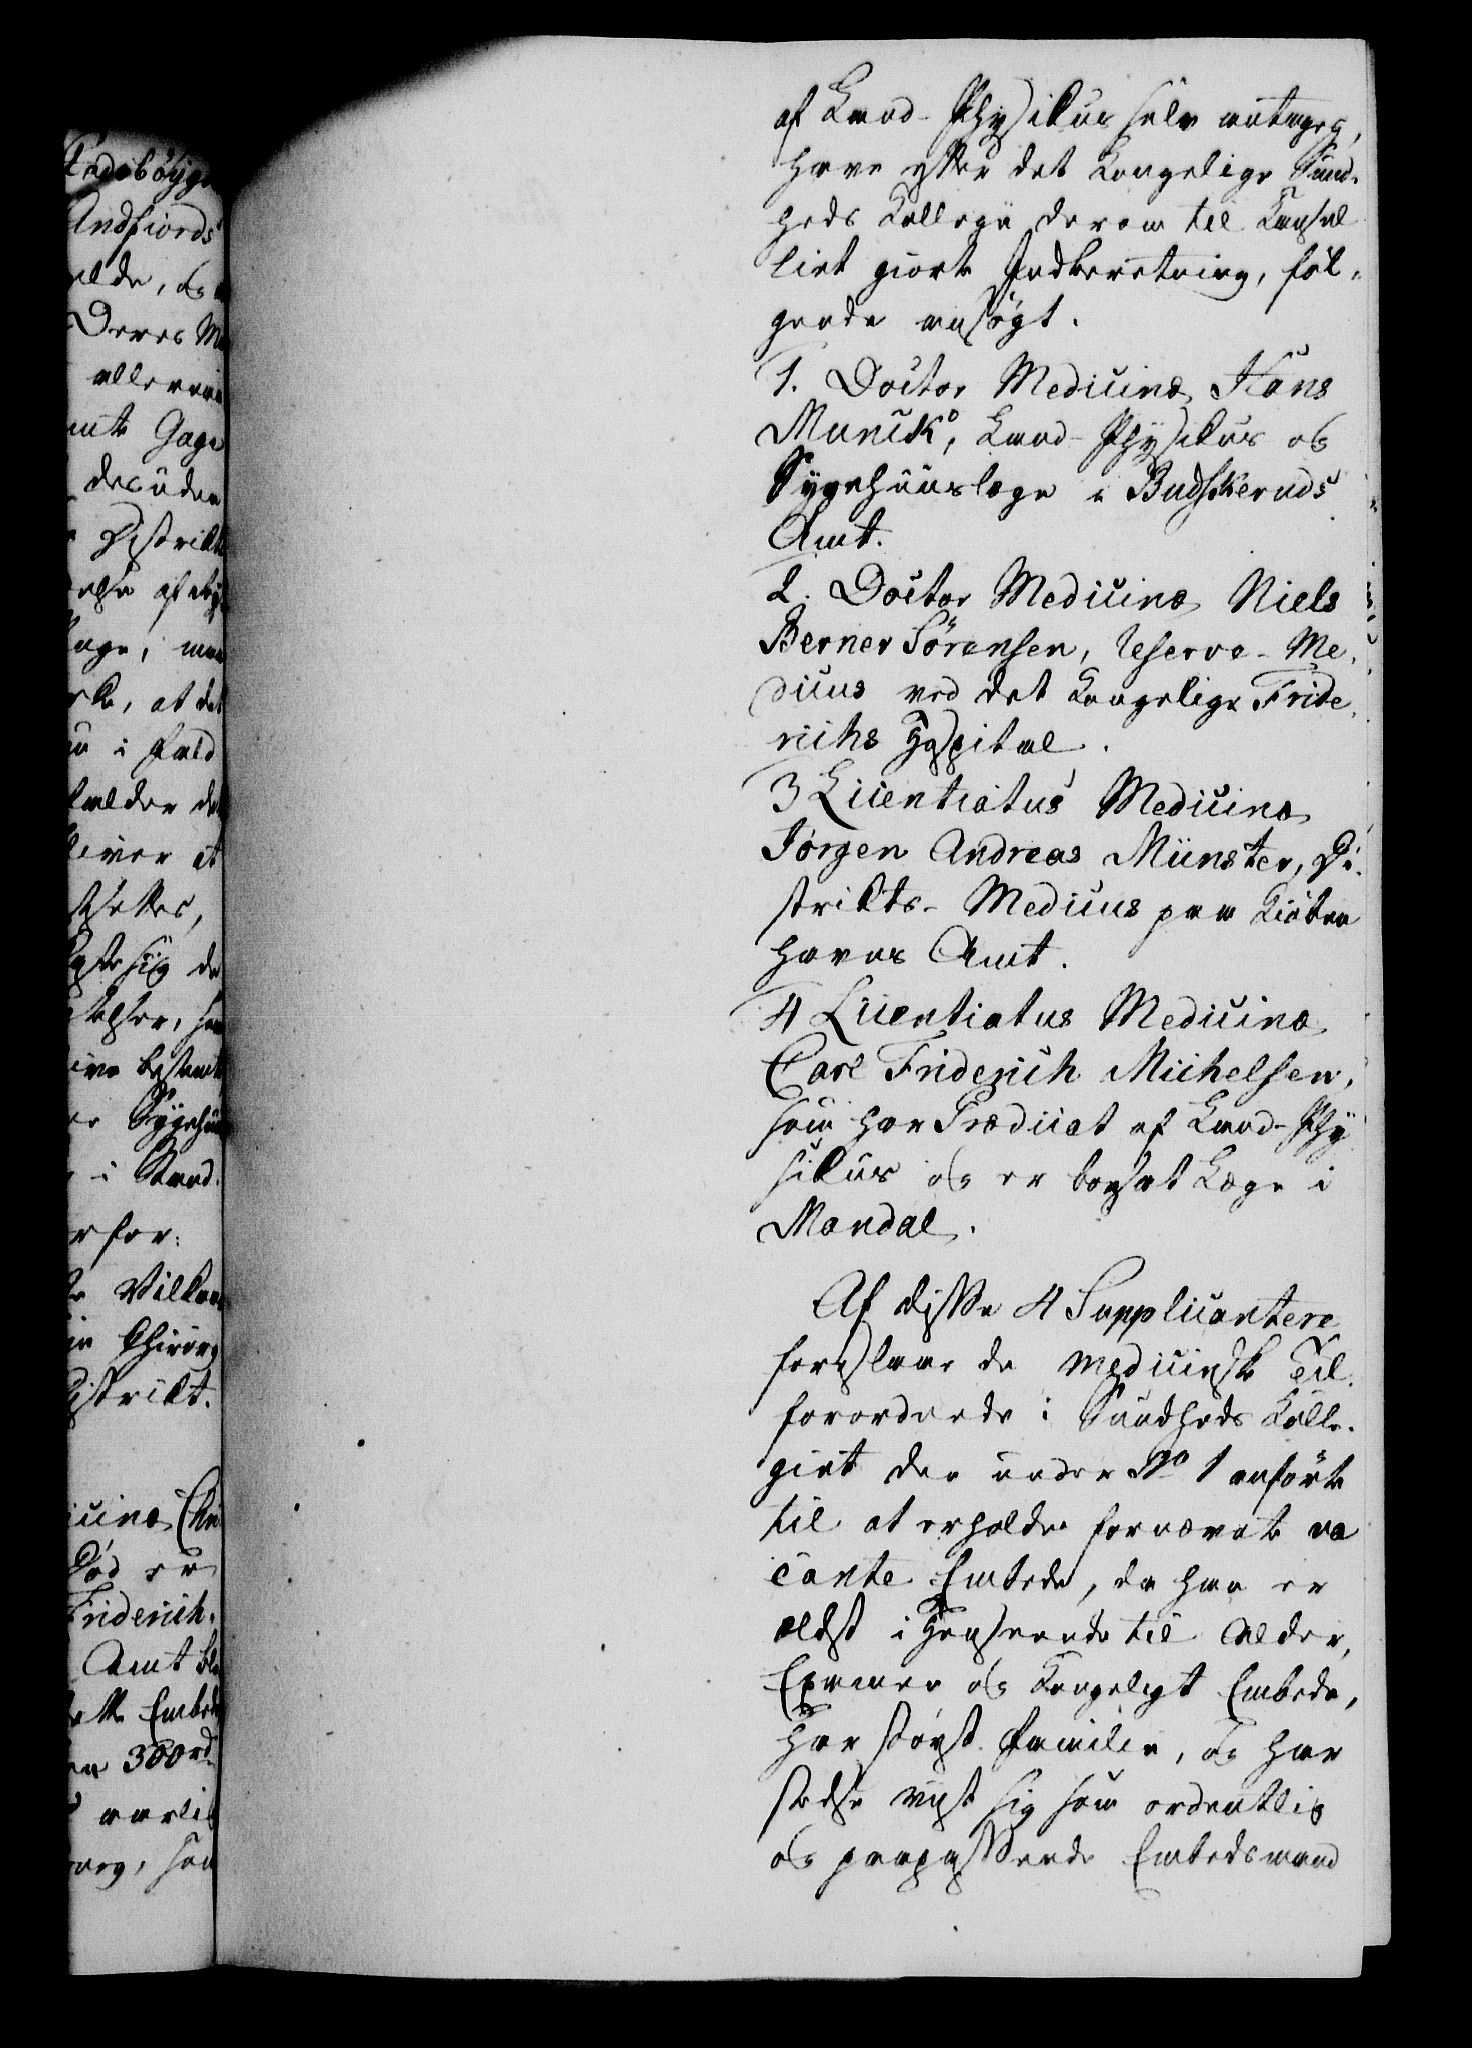 af Land-Physikus selv antages,
have efter det Kongelige Sund-
heds Kollegii derom til Kansel
liet giorte Indberetning, föl-
gende ansögt.
1. Doctor Medicinæ Hans
Munck, Land-Physikus og
Sygehuuslæge i Budskeruds
Amt.
2. Doctor Medicinæ Niels
Berner Sörensen, Reserve-Me-
dicus ved det Kongelige Fride-
richs Hospital.
3 Licentiatus Medicinæ
Jörgen Andreas Münster, Di-
strikts-Medicus paa Kiöben
havns Amt.
4 Licentiatus Medicinæ
Carl Friderich Michelsen,
som har Prædicat af Land-Phy
sikus og er bosat Læge i
Mandal.
Af disse 4 Supplicantere
foreslaae de medicinske Til-
forordnede i Sundheds Kolle-
giet den under No 1 anförte
til at erholde fornævnte va
cante Embede, da han er
ældst i Henseende til Alder,
Examen og Kongeligt Embede,
har störst Familie, og har
stedse viist sig som ordentlig
og paapassende Embedsmand